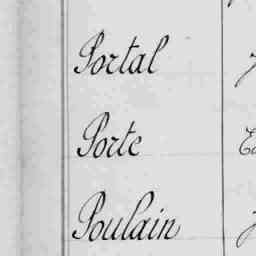 Portal
Porte
Poulain